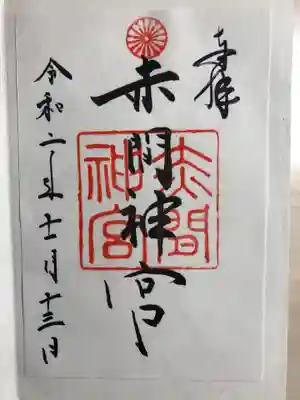 奉拝
赤間神宮
赤間
神宮
令和二年十一月十三日